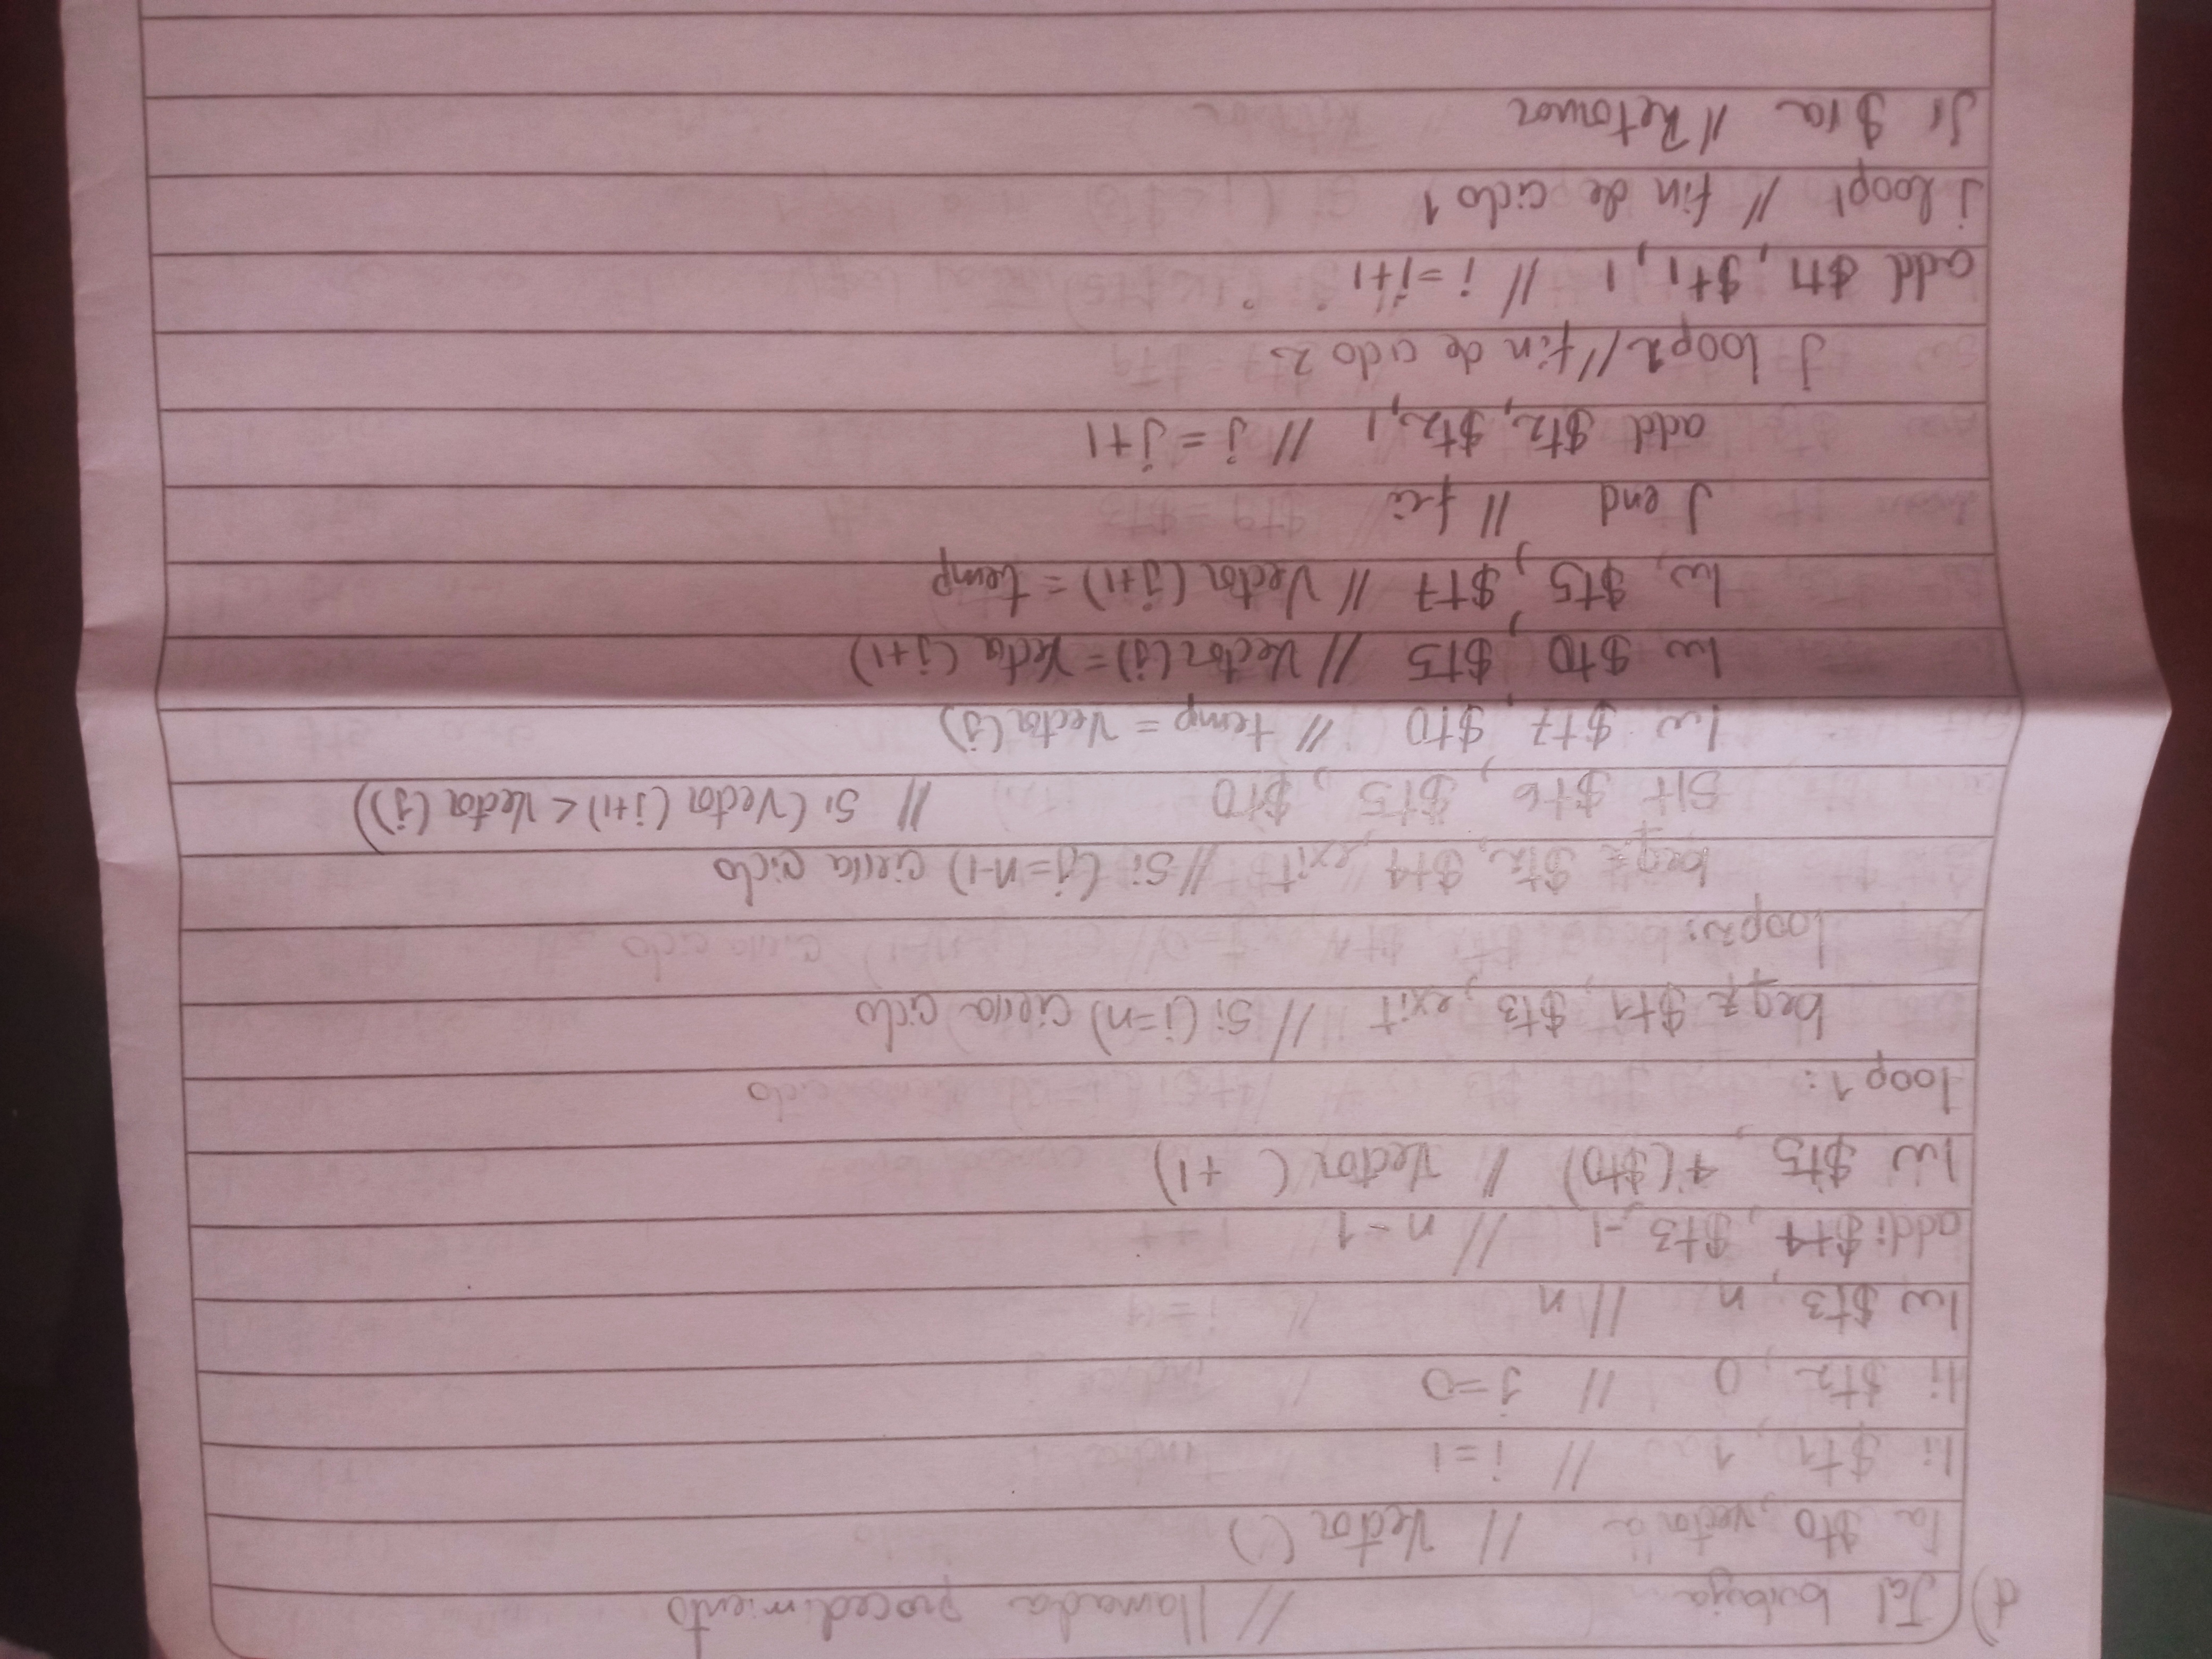 d) Jal burbuja // llamada procedimiento
la $t0, vector a // Vector ()
li $t1, 1 // i=1
li $t2, 0 // j=0
lw $t3, n // n
addi $t4, $t3, -1 // n-1
lw $t5, 4($t0) // Vector ( +1)
loop1:
beqz $t1, $t3, exit // Si (i=n) cierra ciclo
loop2:
beqz $t2, $t4, exit // Si (j=n-1) cierra ciclo
slt $t6, $t5, $t0 // Si (Vector (j+1) < Vector (j))
lw $t7, $t0 // temp = Vector(j)
lw $t0, $t5 // Vector (j) = Vector (j+1)
lw, $t5, $t7 // Vector (j+1) = temp
J end //
add $t2, $t2, 1 // j = j+1
J loop2 // fin de ciclo 2
add $t1, $t1, 1 // i = i+1
j loop1 // fin de ciclo 1
Jr $ra // Retornar